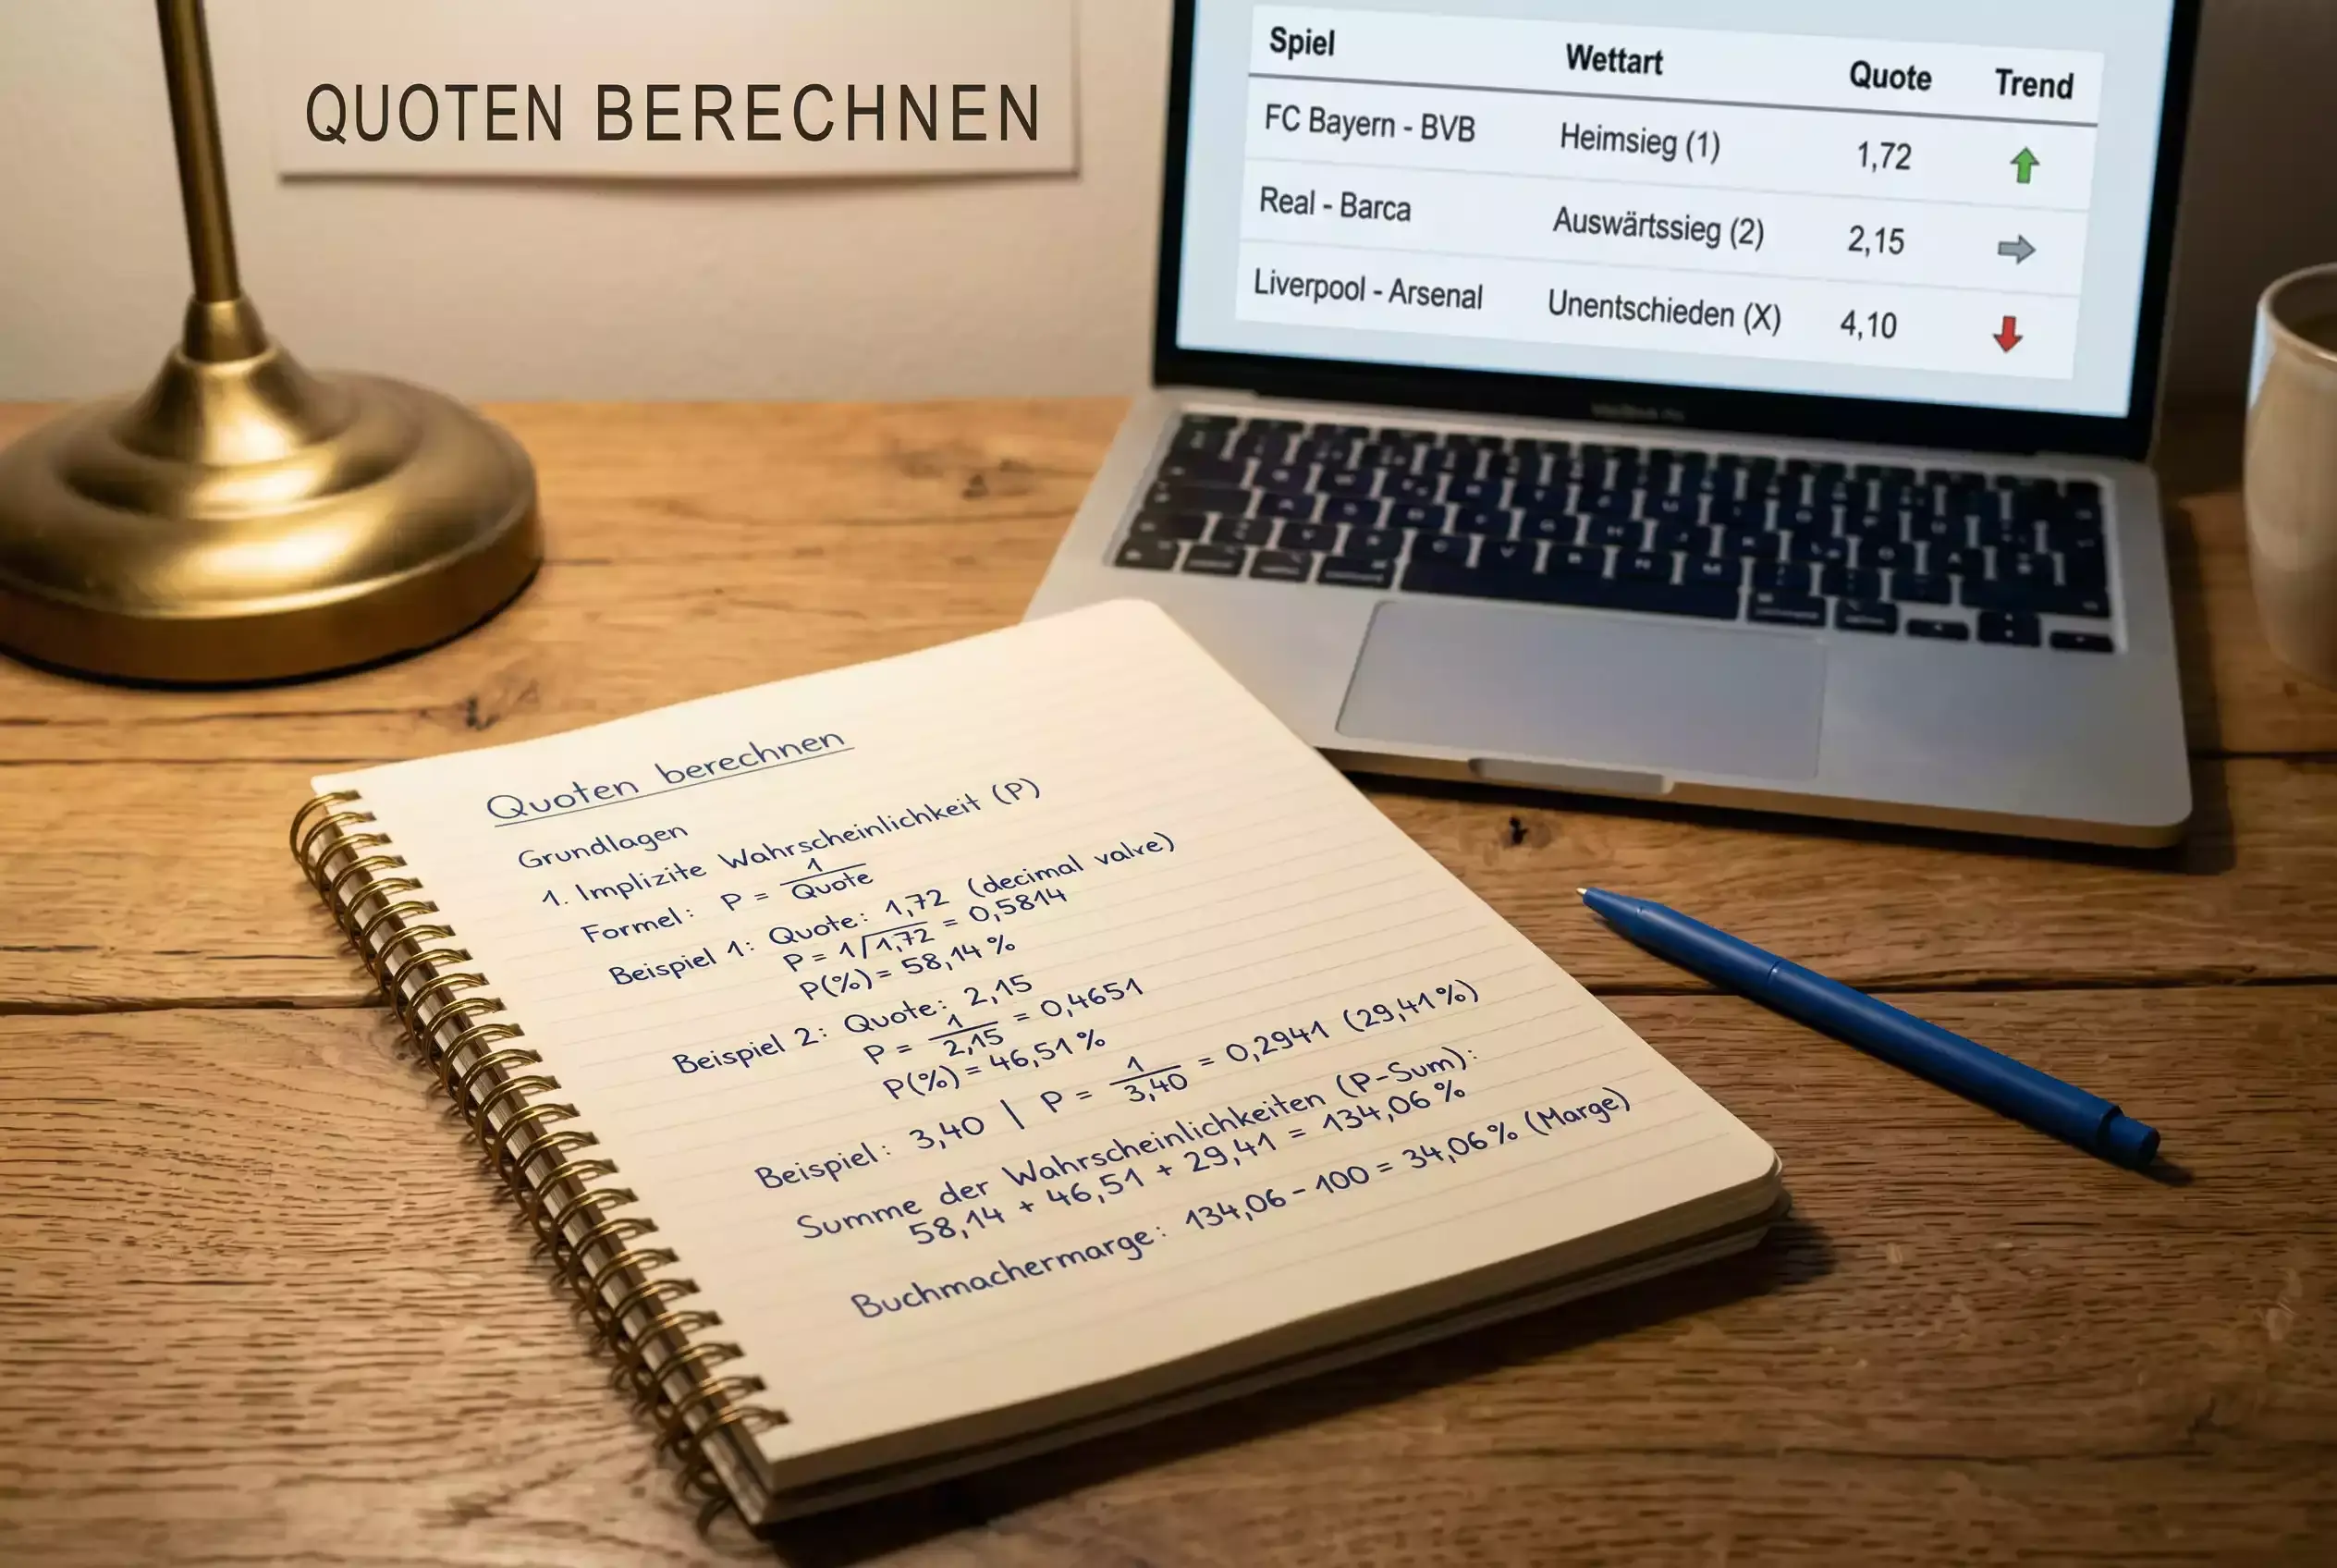 QUOTEN BERECHNEN
Spiel Wettart Quote Trend
FC Bayern - BVB Heimsieg (1) 1,72
Real - Barca Auswärtssieg (2) 2,15
Liverpool - Arsenal Unentschieden (X) 4,10
Quoten berechnen
Grundlagen
1. Implizite Wahrscheinlichkeit (P)
Formel: P = 1/Quote
Beispiel 1: Quote: 1,72 (decimal valve)
P = 1/1,72 = 0,5814
P(%) = 58,14 %
Beispiel 2: Quote: 2,15
P = 1/2,15 = 0,4651
P(%) = 46,51 %
Beispiel: 3,40 | P = 1/3,40 = 0,2941 (29,41 %)
Summe der Wahrscheinlichkeiten (P-Sum):
58,14 + 46,51 + 29,41 = 134,06 %
Buchmachermarge: 134,06 - 100 = 34,06 % (Marge)